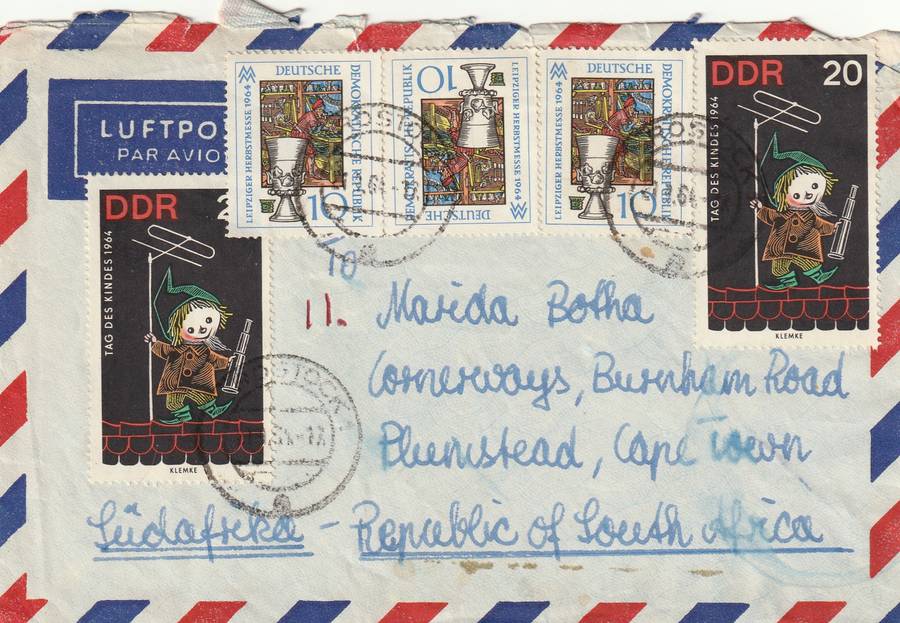 LUFTPO
PAR AVIO
LEIPZIGER HERBSTMESSE 1964
DEUTSCHE
DEMOKRATISCHE REPUBLIK
10
DEUTSCHE
DEMOKRATISCHE REPUBLIK
10
LEIPZIGER HERBSTMESSE 1964
LEIPZIGER HERBSTMESSE 1964
DEUTSCHE
DEMOKRATISCHE REPUBLIK
10
DDR 20
TAG DES KINDES 1964
KLEMKE
DDR 2
TAG DES KINDES 1964
KLEMKE
ROSTOCK
a
10
11.
Marida Botha
Cornerways, Burnham Road
Plumstead, Cape Town
Südafrika - Republic of South Africa